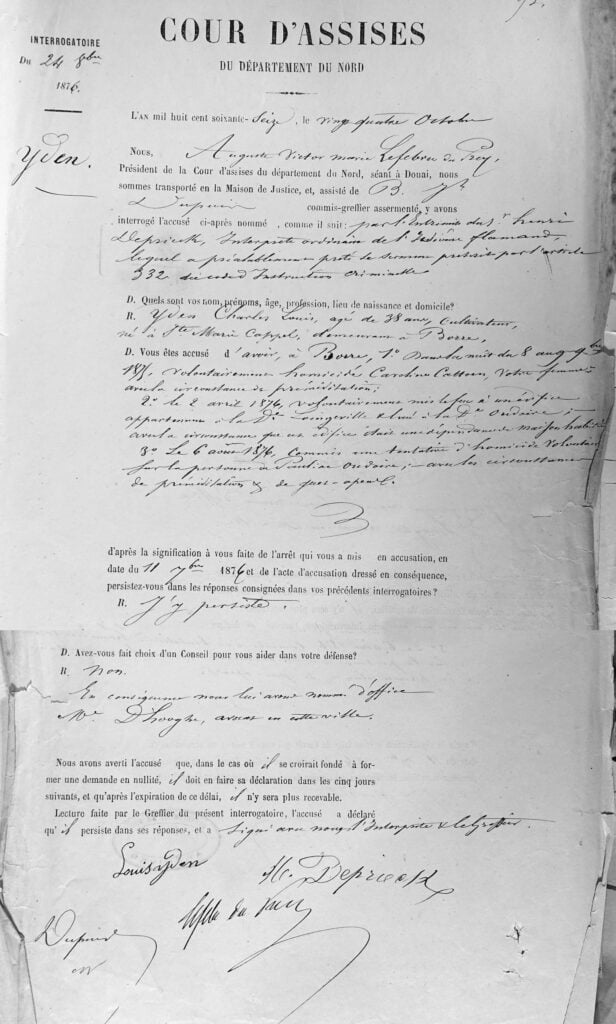 INTERROGATOIRE
Du 24 8bre
1876.
Yden.
COUR D'ASSISES
DU DÉPARTEMENT DU NORD
L'AN mil huit cent soixante-Seize, le vingt quatre Octobre
Nous, Auguste Victor Marie Lefebvre du Prey,
Président de la Cour d'assises du département du Nord, séant à Douai, nous
sommes transporté en la Maison de Justice, et, assisté de
Dupuis commis-greffier assermenté, y avons
interrogé l'accusé ci-après nommé, comme il suit: par l'Entremise du Sr henri
Deprieck, Interprète ordinaire de l'idiome flamand,
lequel a préalablement prêté le serment prescrit par l'article
332 du code d'Instruction Criminelle
D. Quels sont vos nom, prénoms, âge, profession, lieu de naissance et domicile?
R. Yden Charles Louis, agé de 38 ans, Cultivateur,
né à Ste Marie Cappel, demeurant à Borre,
D. Vous êtes accusé d'avoir, à Borre, 1° Dans la nuit du 8 au 9
volontairement homicidé Caroline Cattoen, votre femme;
avec la circonstance de préméditation;
2° le 2 avril 1876, volontairement mis le feu à un édifice
appartenant à la De & loué à la De Ondaire;
avec la circonstance que cet édifice était une dépendance de maison habitée
3° Le 6 aout 1876, commis une tentative d'homicide volontaire
sur la personne de Pauline Ondaire; avec les circonstances
de préméditation & de guet-apens.
d'après la signification à vous faite de l'arrêt qui vous a mis en accusation, en
date du 11 7bre 1876 et de l'acte d'accusation dressé en conséquence,
persistez-vous dans les réponses consignées dans vos précédents interrogatoires?
R. J'y persiste.
D. Avez-vous fait choix d'un Conseil pour vous aider dans votre défense?
R. Non.
En conséquence nous lui avons nommé d'office
Me D'hooghe, avocat en cette ville.
Nous avons averti l'accusé que, dans le cas où il se croirait fondé à for-
mer une demande en nullité, il doit en faire sa déclaration dans les cinq jours
suivants, et qu'après l'expiration de ce délai, il n'y sera plus recevable.
Lecture faite par le Greffier du présent interrogatoire, l'accusé a déclaré
qu'il persiste dans ses réponses, et a signé avec nous l'Interprète & le Greffier.
Louis yden
H. Deprieck
Lefeb du Prey
Dupuis